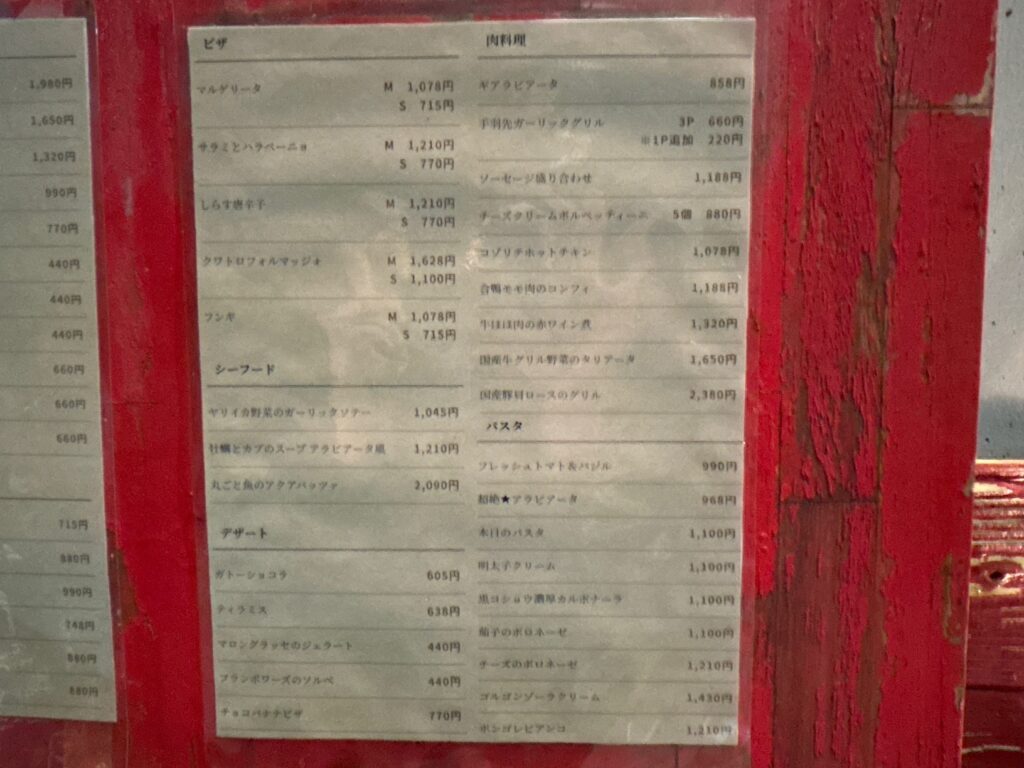 1,980円
1,650円
1,320円
990円
770円
440円
440円
440円
660円
660円
660円
715円
880円
990円
748円
880円
880円
ピザ
マルゲリータ M 1,078円
S 715円
サラミとハラペーニョ M 1,210円
S 770円
しらす唐辛子 M 1,210円
S 770円
クワトロフォルマッジォ M 1,628円
S 1,100円
フンギ M 1,078円
S 715円
シーフード
ヤリイカ野菜のガーリックソテー 1,045円
牡蠣とカブのスープ アラビアータ風 1,210円
丸ごと魚のアクアパッツァ 2,090円
デザート
ガトーショコラ 605円
ティラミス 638円
マロングラッセのジェラート 440円
フランボワーズのソルベ 440円
チョコバナナピザ 770円
肉料理
ギアラビアータ 858円
手羽先ガーリックグリル 3P 660円
※1P追加 220円
ソーセージ盛り合わせ 1,188円
チーズクリームポルペッティーニ 5個 880円
コゾリテホットチキン 1,078円
合鴨モモ肉のコンフィ 1,188円
牛ほほ肉の赤ワイン煮 1,320円
国産牛グリル野菜のタリアータ 1,650円
国産豚肩ロースのグリル 2,380円
パスタ
フレッシュトマト&バジル 990円
超絶★アラビアータ 968円
本日のパスタ 1,100円
明太子クリーム 1,100円
黒コショウ濃厚カルボナーラ 1,100円
茄子のボロネーゼ 1,100円
チーズのボロネーゼ 1,210円
ゴルゴンゾーラクリーム 1,430円
ボンゴレビアンコ 1,210円